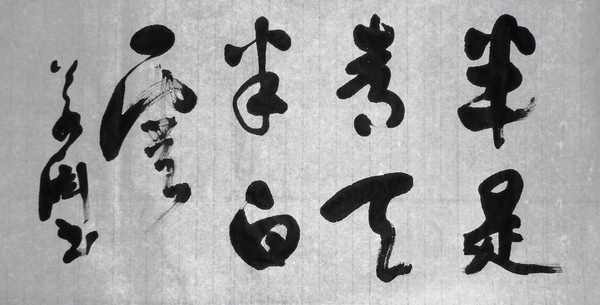 半是
青天
半白
雲
书